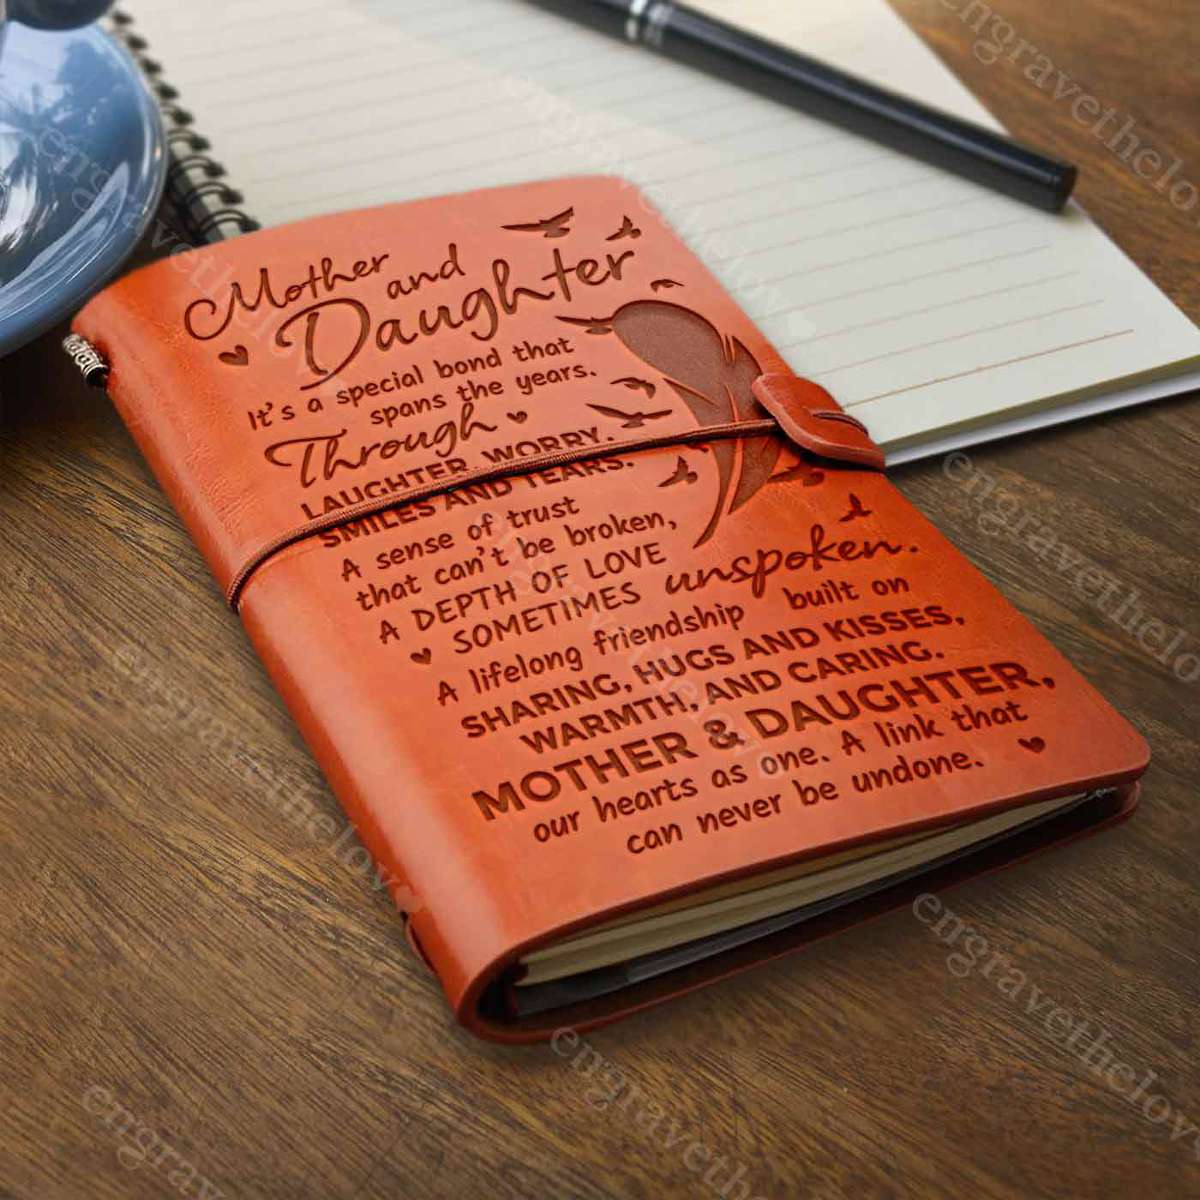 Mother and
Daughter
It's a special bond that
spans the years.
Through
LAUGHTER, WORRY.
SMILES AND TEARS.
A sense of trust
that can't be broken,
A DEPTH OF LOVE
SOMETIMES unspoken.
A lifelong friendship built on
SHARING, HUGS AND KISSES,
WARMTH, AND CARING.
MOTHER & DAUGHTER,
our hearts as one. A link that
can never be undone.
engravethelove
engravethelov
engravethelov
engravethelov
engravethelov
engravethelov